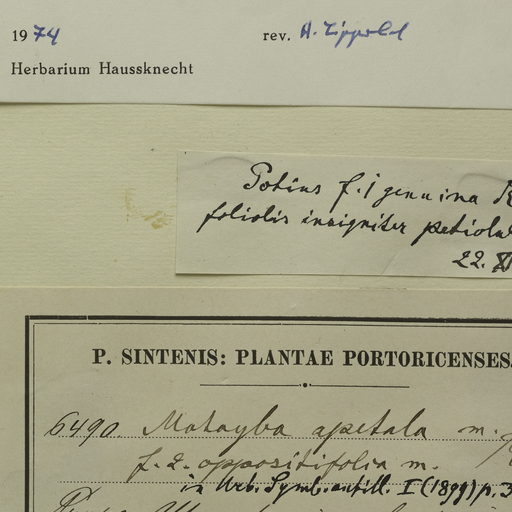 1974 rev. A. Zippold
Herbarium Haussknecht
Potius f. 1 genuina
foliolis insigniter
22. XI
P. SINTENIS: PLANTAE PORTORICENSES
6490. Matayba apetala m.
f. 2. oppositifolia m.
in Urb. Symb. antill. I (1899) p. 3